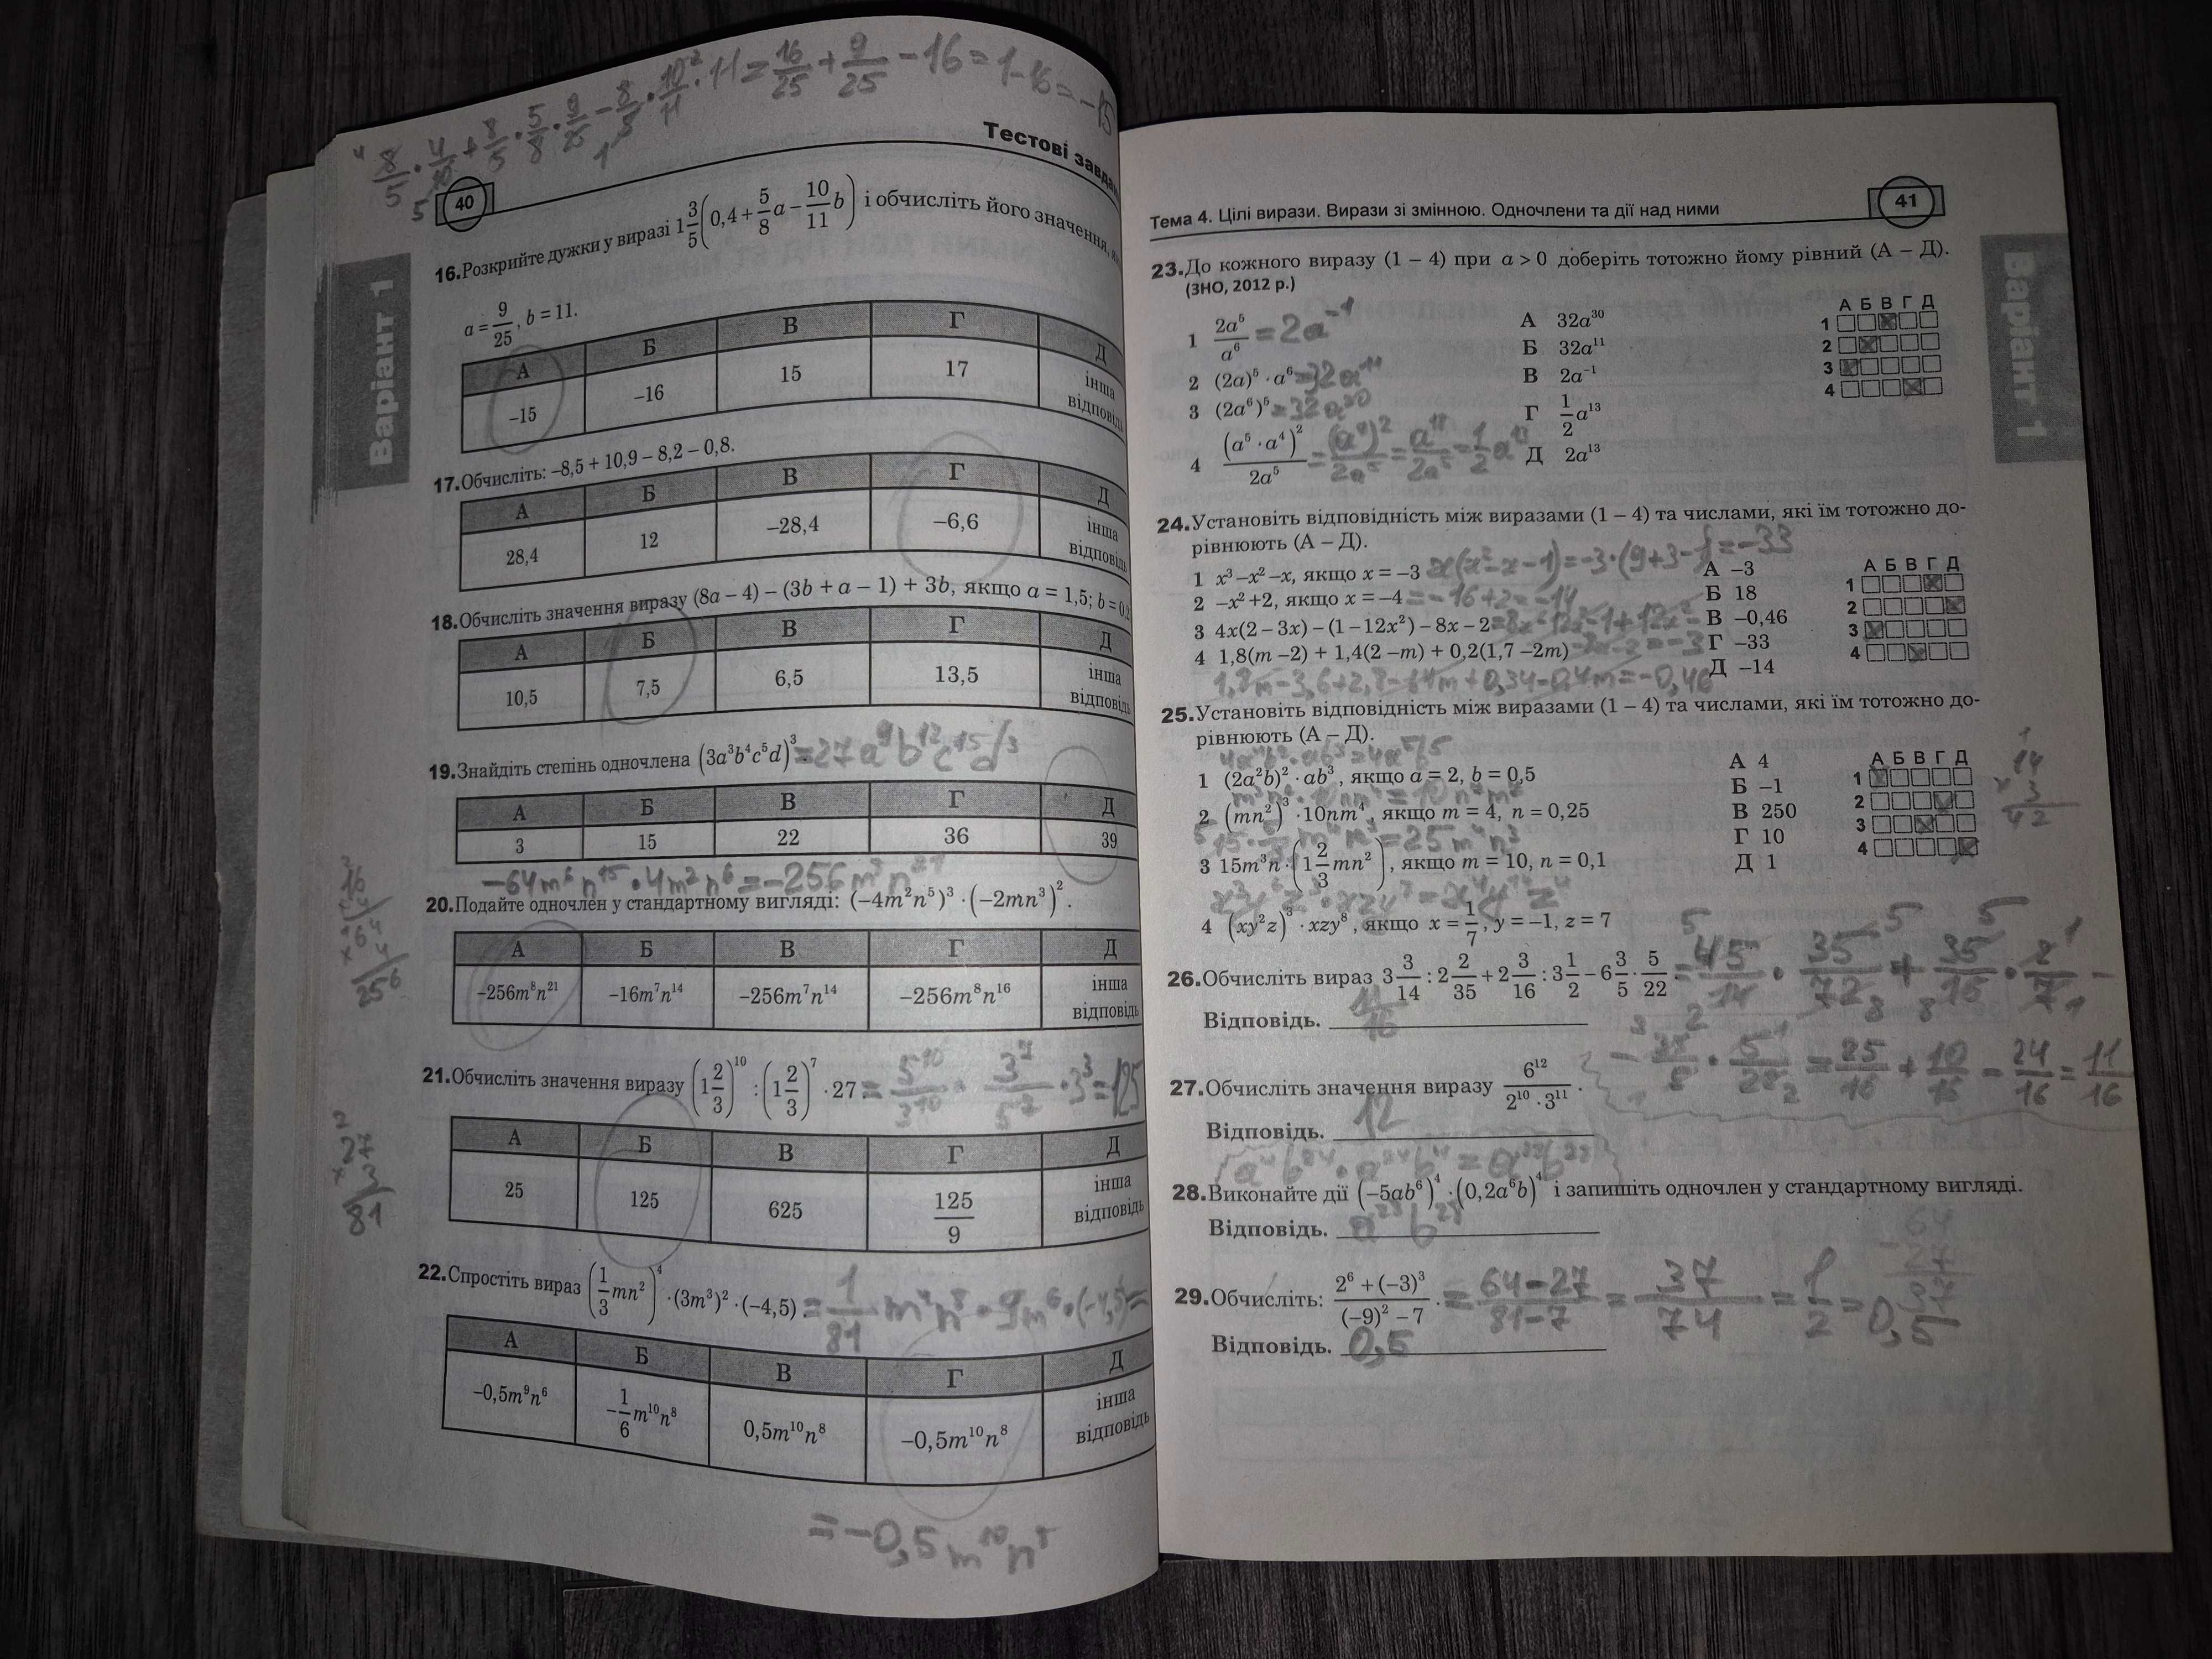 8/5 · 4/25 + 8/5 · 5/8 · 9/25 − 8/5 · 10/11 · 11 = 16/25 + 9/25 − 16 = 1−16 = −15
Тестові
40
Варіант 1
16. Розкрийте дужки у виразі 1 3/5 (0,4 + 5/8 a − 10/11 b) і обчисліть його значення,
a = 9/25, b = 11.
А Б В Г Д
–15 –16 15 17 інша відповідь
17. Обчисліть: –8,5 + 10,9 – 8,2 – 0,8.
А Б В Г Д
28,4 12 –28,4 –6,6 інша відповідь
18. Обчисліть значення виразу (8a – 4) – (3b + a – 1) + 3b, якщо a = 1,5;
А Б В Г Д
10,5 7,5 6,5 13,5 інша відповідь
19. Знайдіть степінь одночлена (3a³b⁴c⁵d)³ = 27a⁹b¹²c¹⁵d³
А Б В Г Д
3 15 22 36 39
−64m⁶n¹⁵ · 4m²n⁶ = −256m⁸n²¹
20. Подайте одночлен у стандартному вигляді: (–4m²n⁵)³ · (–2mn³)².
А Б В Г Д
–256m⁸n²¹ –16m⁷n¹⁴ –256m⁷n¹⁴ –256m⁸n¹⁶ інша відповідь
256
21. Обчисліть значення виразу (1 2/3)¹⁰ : (1 2/3)⁷ · 27 = 5¹⁰/3¹⁰ · 3⁷/5⁷ · 3³ = 125
А Б В Г Д
25 125 625 125/9 інша відповідь
27
3
81
22. Спростіть вираз (1/3 mn²)⁴ · (3m³)² · (–4,5) = 1/81 m⁴n⁸ · 9m⁶ · (−4,5) =
А Б В Г Д
–0,5m⁹n⁶ –1/6 m¹⁰n⁸ 0,5m¹⁰n⁸ –0,5m¹⁰n⁸ інша відповідь
= −0,5m¹⁰n⁸
Тема 4. Цілі вирази. Вирази зі змінною. Одночлени та дії над ними
41
Варіант 1
23. До кожного виразу (1 – 4) при a > 0 доберіть тотожно йому рівний (А – Д).
(ЗНО, 2012 р.)
А Б В Г Д
1 2a⁵/a⁶ = 2a⁻¹ А 32a³⁰ 1
2 (2a)⁵ · a⁶ = 32a¹¹ Б 32a¹¹ 2
3 (2a⁶)⁵ = 32a³⁰ В 2a⁻¹ 3
4 (a⁵ · a⁴)²/2a⁵ = (a⁹)²/2a⁵ = a¹⁸/2a⁵ = 1/2 a¹³ Г 1/2 a¹³ 4
Д 2a¹³
24. Установіть відповідність між виразами (1 – 4) та числами, які їм тотожно до-
рівнюють (А – Д).
А Б В Г Д
1 x³–x²–x, якщо x = –3 x(x²−x−1)=−3·(9+3−1)=−33 А –3 1
2 –x²+2, якщо x = –4 = −16+2=−14 Б 18 2
3 4x(2 – 3x) – (1 – 12x²) – 8x – 2 = 8x−12x²−1+12x²− В –0,46 3
4 1,8(m –2) + 1,4(2 –m) + 0,2(1,7 –2m) −8x−2=−3 Г –33 4
1,8m−3,6+2,8−1,4m+0,34−0,4m=−0,46 Д –14
25. Установіть відповідність між виразами (1 – 4) та числами, які їм тотожно до-
рівнюють (А – Д).
4a⁴b²·ab³=4a⁵b⁵
А Б В Г Д
1 (2a²b)² · ab³, якщо a = 2, b = 0,5 А 4 1
Б –1
2 (mn²)³ · 10nm⁴, якщо m = 4, n = 0,25 В 250 2
= 25m⁴n³ Г 10
3 15m³n · (1 2/3 mn²), якщо m = 10, n = 0,1 Д 1 3
4 (xy²z)³ · xzy⁸, якщо x = 1/7, y = –1, z = 7 4
14
3
42
26. Обчисліть вираз 3 3/14 : 2 2/35 + 2 3/16 : 3 1/2 – 6 3/5 · 5/22. = 45/14 · 35/72 + 35/16 · 2/7 −
Відповідь. 11/16
− 33/5 · 5/22 = 25/16 + 10/16 − 24/16 = 11/16
27. Обчисліть значення виразу 6¹²/2¹⁰ · 3¹¹.
Відповідь. 12
a⁴b²⁴ · a²⁴b⁴ = a²⁸b²⁸
28. Виконайте дії (–5ab⁶)⁴ · (0,2a⁶b)⁴ і запишіть одночлен у стандартному вигляді.
Відповідь. a²⁸b²⁸
64
27
37
29. Обчисліть: 2⁶ + (–3)³/(–9)² – 7. = 64−27/81−7 = 37/74 = 1/2 = 0,5
Відповідь. 0,5